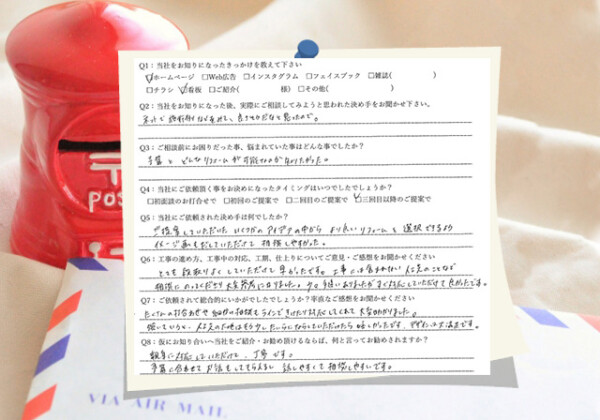 Q1：当社をお知りになったきっかけを教えて下さい
☑ホームページ □Web広告 □インスタグラム □フェイスブック □雑誌( )
□チラシ ☑看板 □ご紹介( 様) □その他( )
Q2：当社をお知りになった後、実際にご相談してみようと思われた決め手をお聞かせ下さい。
ネットで 施工例などを拝見し、良さそうだなと思ったので。
Q3：ご相談前にお困りだった事、悩まれていた事はどんな事でしたか？
予算と どんなリフォームが可能なのか知りたかった。
Q4：当社にご依頼頂く事をお決めになったタイミングはいつでしたでしょうか？
□初面談のお打合せで □初回のご提案で □二回目のご提案で ☑三回目以降のご提案で
Q5：当社にご依頼された決め手は何でしたか？
ご提案していただいた いくつかのアイデアの中から より良いリフォームを選択できるよう
イメージ画も だしていただけて 相談しやすかった。
Q6：工事の進め方、工事中の対応、工期、仕上りについてご意見・ご感想をお聞かせください
とても段取りよくしていただけて 早かったです。工事には含まれない のことなど
相談に のってくださり 大変 になりました。 ありましたが すぐ対応していただけて 良かったです。
Q7：ご依頼されて総合的にいかがでしたでしょうか？率直なご感想をお聞かせください
の打ち合わせや 相談も ラインで 対応してくれて 大変助かりました。
です。
Q8：お知り合いへ当社をご紹介・お勧め頂けるならば、何と言ってお勧めされますか？
親身に対応していただけて、丁寧です。
予算に合わせて お話をしてもらえるし 話しやすくて 相談しやすいです。
POS
VIA AIR MAIL